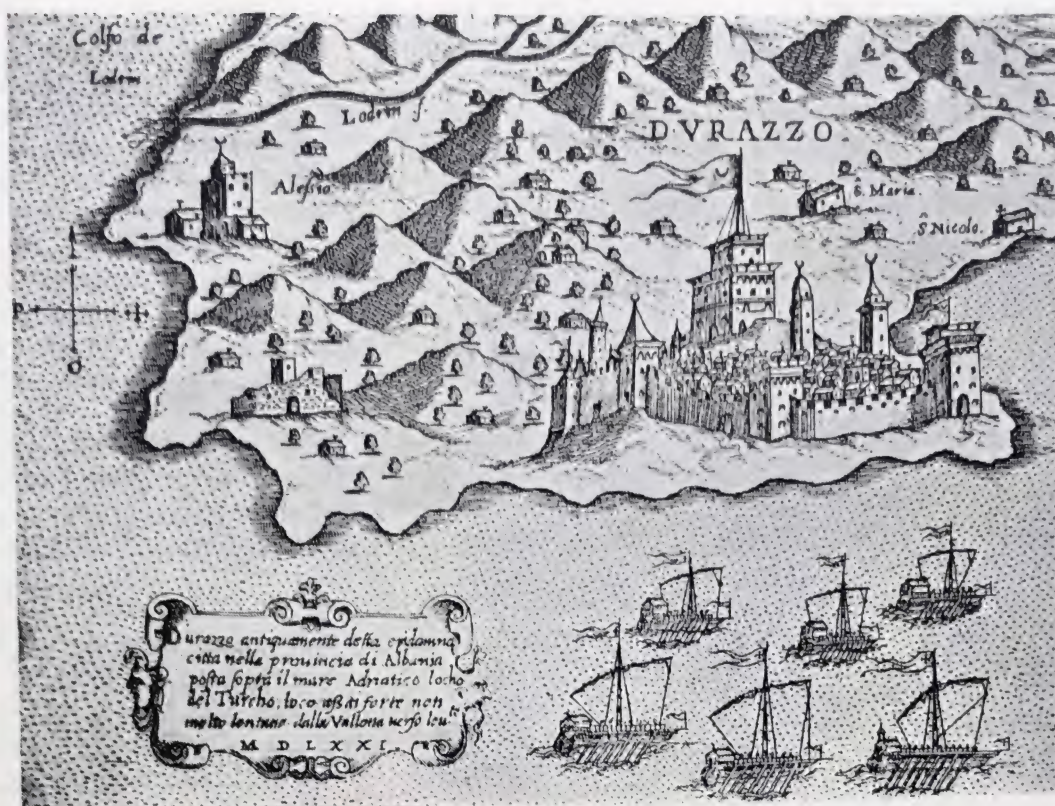 Colfo de
Lodrin
Lodrin f.
DVRAZZO
Alessio
S. Maria.
S. Nicolo.
P
O
Durazzo antiquamente detta epidamna
citta nella prouincia di Albania
posta sopra il mare Adriatico locho
del Turcho, loco assai forte non
molto lontano dalla Vallona uerso
M D L X X I